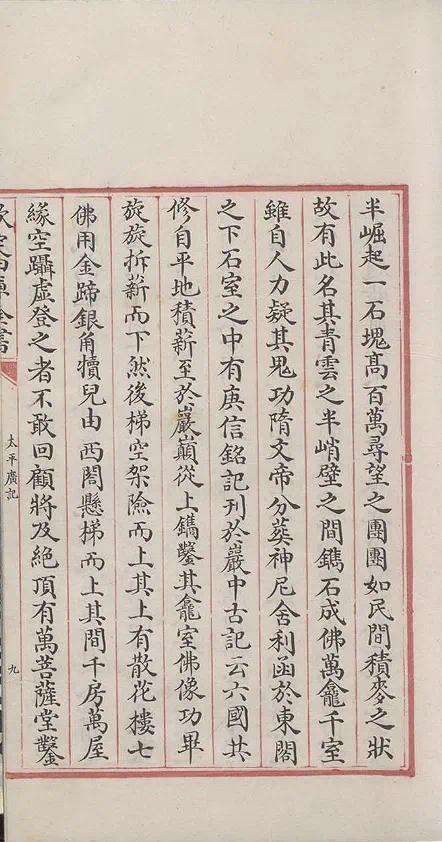 半崛起一石塊髙百萬尋望之團團如民間積麥之狀
故有此名其青雲之半峭壁之間鐫石成佛萬龕千室
雖自人力疑其鬼功隋文帝分葬神尼舍利函於東閣
之下石室之中有庾信銘記刊於巖中古記云六國共
修自平地積薪至於巖巔從上鐫鑿其龕室佛像功畢
旋旋拆薪而下然後梯空架險而上其上有散花樓七
佛用金蹄銀角犢兒由西閣懸梯而上其間千房萬屋
緣空躡虚登之者不敢回顧將及絶頂有萬菩薩堂鑿
太平廣記
九